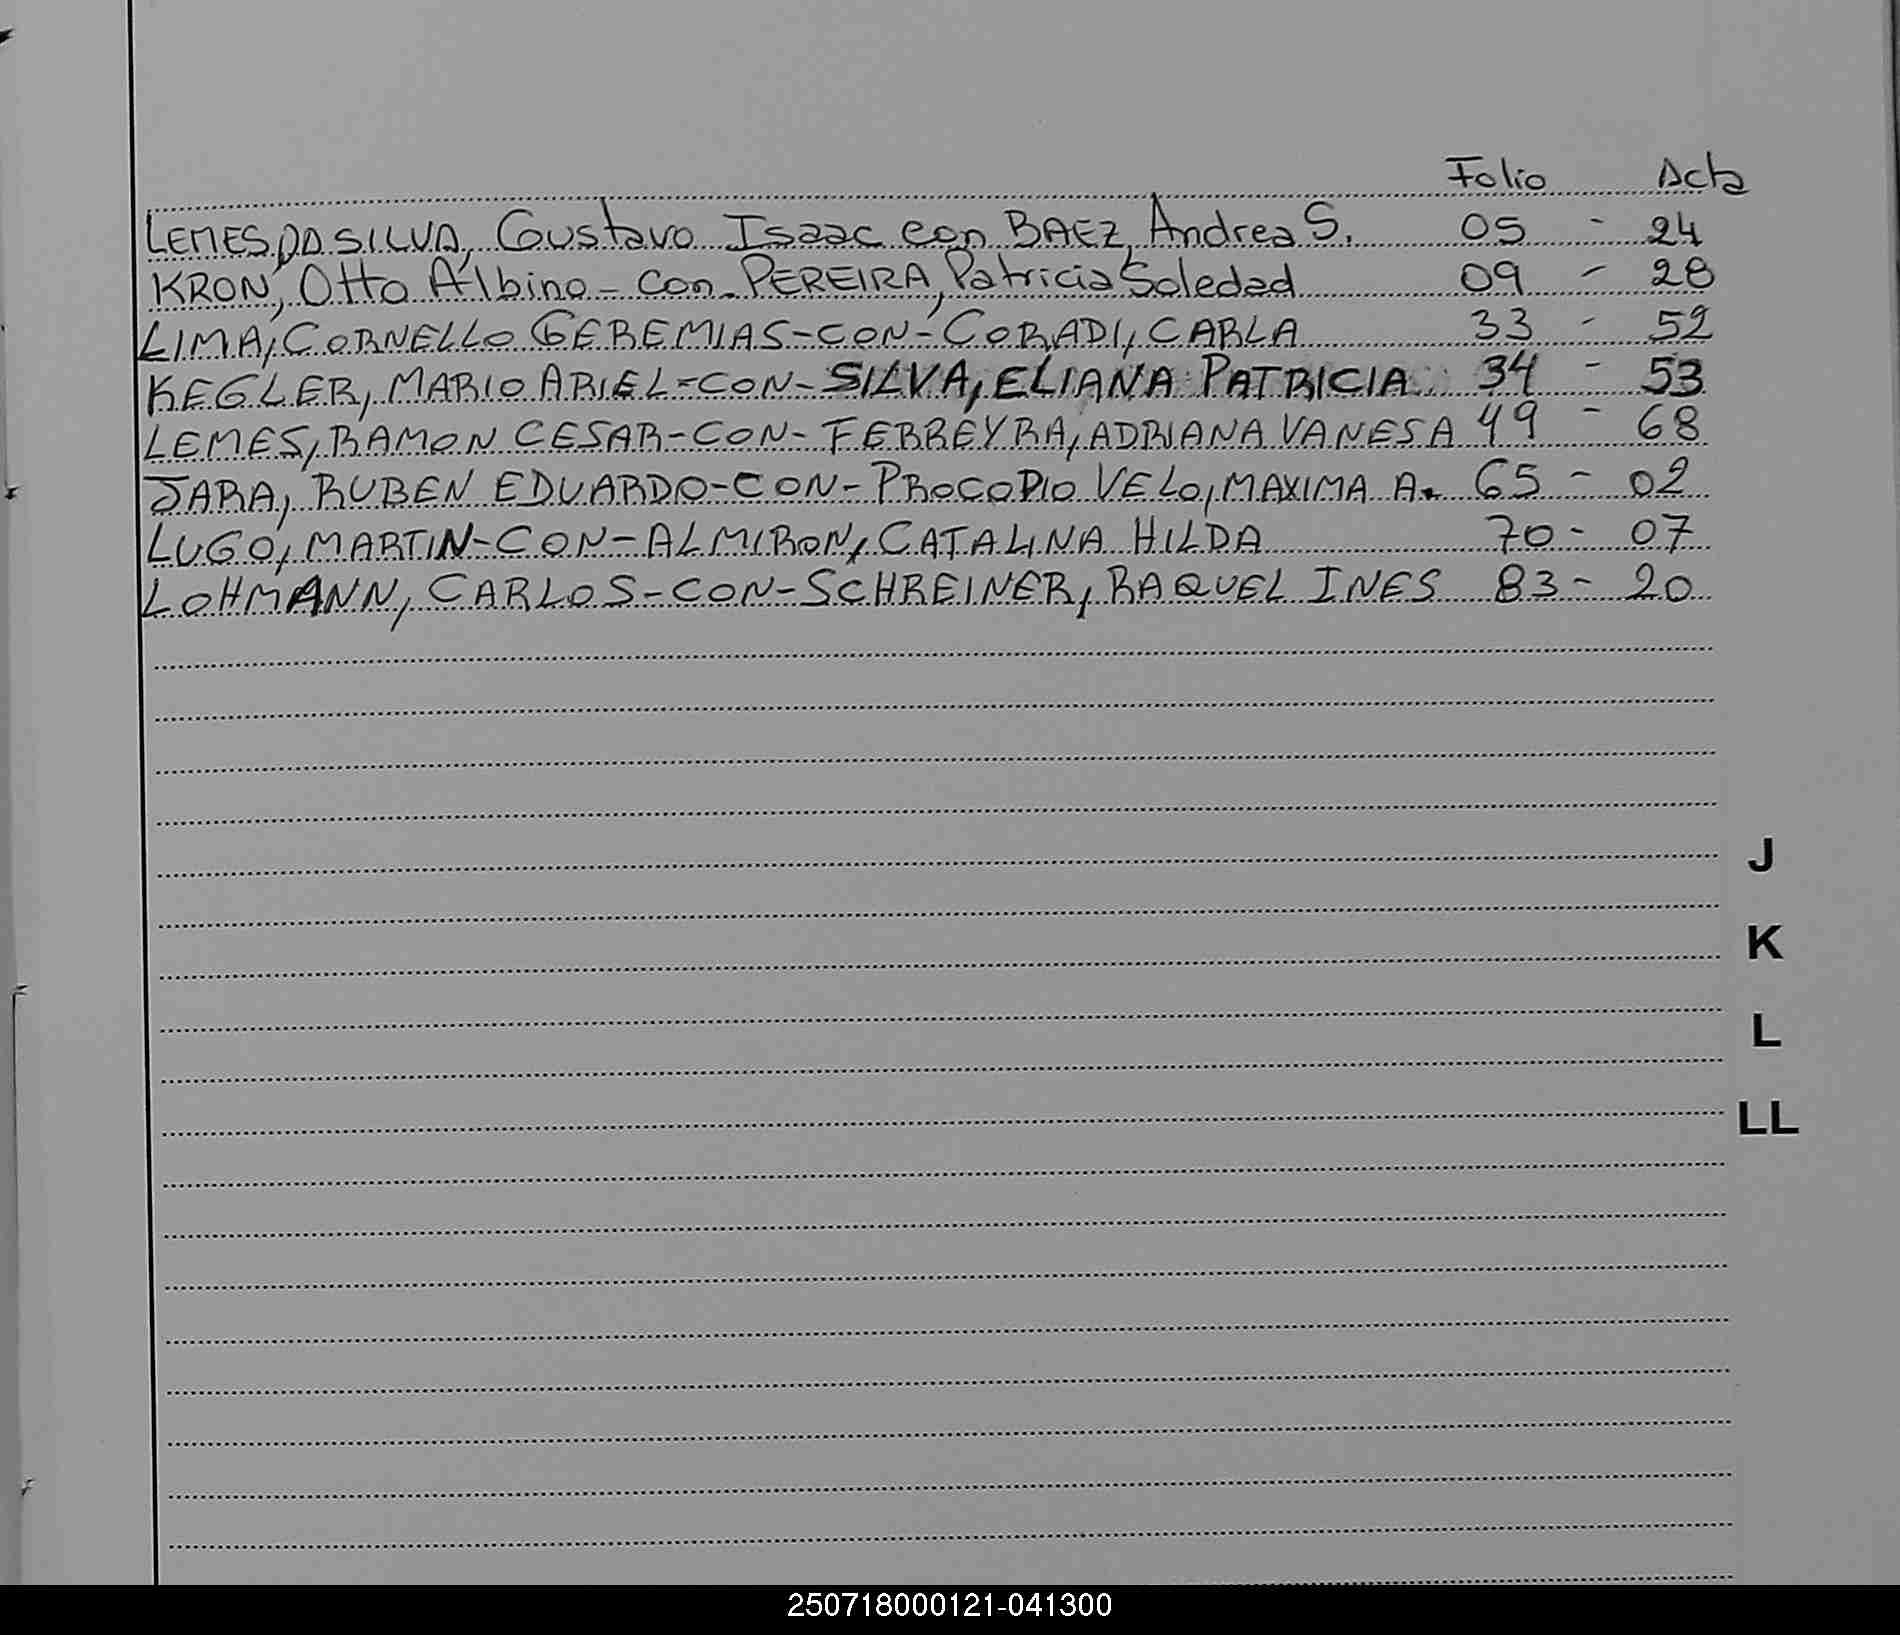 Folio Acta
LEMES DA SILVA, Gustavo Isaac con BAEZ, Andrea S. 05 - 24
KRON, Otto Albino - con - PEREIRA, Patricia Soledad 09 - 28
LIMA, CORNELLO GEREMIAS-CON-CORADI, CARLA 33 - 52
KEGLER, MARIO ARIEL-CON-SILVA, ELIANA PATRICIA 34 - 53
LEMES, RAMON CESAR-CON-FERREYRA, ADRIANA VANESA 49 - 68
JARA, RUBEN EDUARDO-CON-PROCOPIO VELO, MAXIMA A. 65 - 02
LUGO, MARTIN-CON-ALMIRON, CATALINA HILDA 70 - 07
LOHMANN, CARLOS-CON-SCHREINER, RAQUEL INES 83 - 20
J
K
L
LL
250718000121-041300